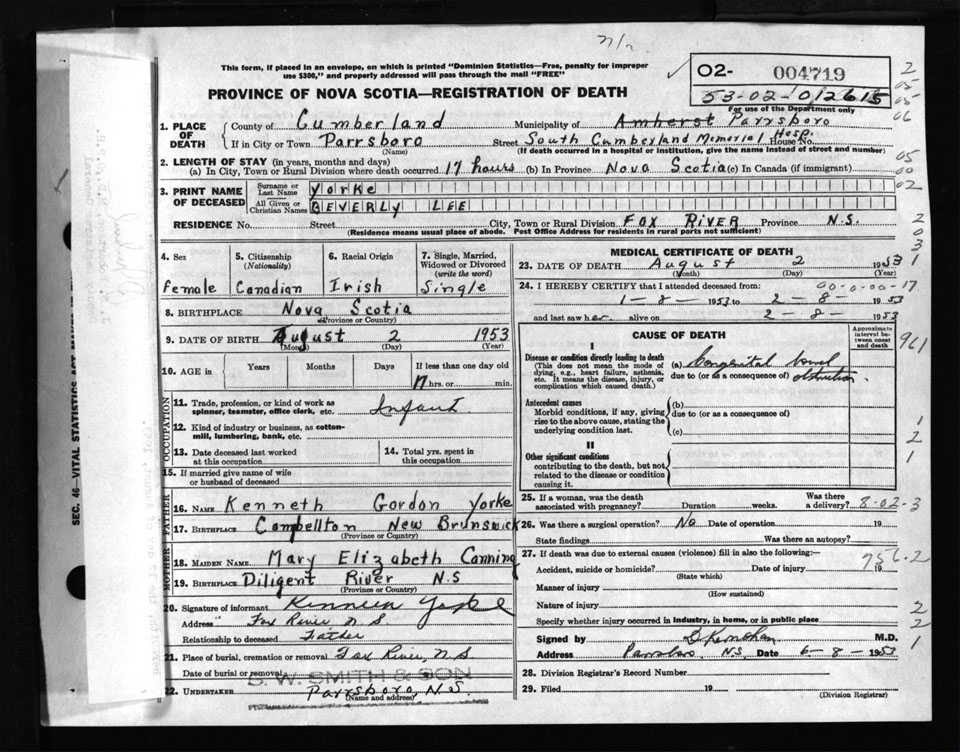 n/r
This form, if placed in an envelope, on which is printed "Dominion Statistics—Free, penalty for improper
use $300," and properly addressed will pass through the mail "FREE"
O2- 004719
53-02-012615
For use of the Department only
PROVINCE OF NOVA SCOTIA—REGISTRATION OF DEATH
1. PLACE OF DEATH
County of Cumberland Municipality of Amherst Parrsboro
If in City or Town Parrsboro Street South Cumberland Memorial Hosp. House No.
(Name) (If death occurred in a hospital or institution, give the name instead of street and number)
2. LENGTH OF STAY (in years, months and days)
(a) In City, Town or Rural Division where death occurred 17 hours (b) In Province Nova Scotia (c) In Canada (if immigrant)
3. PRINT NAME OF DECEASED
Surname or Last Name Yorke
All Given or Christian Names BEVERLY LEE
RESIDENCE No. Street City, Town or Rural Division FOX RIVER Province N.S.
(Residence means usual place of abode. Post Office Address for residents in rural parts not sufficient)
4. Sex Female
5. Citizenship (Nationality) Canadian
6. Racial Origin Irish
7. Single, Married, Widowed or Divorced (write the word) Single
8. BIRTHPLACE Nova Scotia
(Province or Country)
9. DATE OF BIRTH August 2 1953
(Month) (Day) (Year)
10. AGE in Years Months Days If less than one day old
17 hrs. or min.
OCCUPATION
11. Trade, profession, or kind of work as
spinner, teamster, office clerk, etc. Infant
12. Kind of industry or business, as cotton-
mill, lumbering, bank, etc.
13. Date deceased last worked
at this occupation
14. Total yrs. spent in
this occupation
15. If married give name of wife
or husband of deceased
FATHER
16. NAME Kenneth Gordon Yorke
17. BIRTHPLACE Campellton New Brunswick
(Province or Country)
MOTHER
18. MAIDEN NAME Mary Elizabeth Canning
19. BIRTHPLACE Diligent River N.S
(Province or Country)
20. Signature of informant Kenneth Yorke
Address Fox River N S
Relationship to deceased Father
21. Place of burial, cremation or removal Fox River, N S
Date of burial or removal
S. W. SMITH & SON
22. UNDERTAKER Parrsboro, N.S.
(Name and address)
MEDICAL CERTIFICATE OF DEATH
23. DATE OF DEATH August 2 1953
(Month) (Day) (Year)
00-0-00-17
24. I HEREBY CERTIFY that I attended deceased from
1-8- 1953 to 2-8- 1953
and last saw her alive on 2-8- 1953
CAUSE OF DEATH
Approximate interval between onset and death
I
Disease or condition directly leading to death
(This does not mean the mode of
dying, e.g., heart failure, asthenia,
etc. It means the disease, injury, or
complication which caused death.)
(a) Congenital bowel
due to (or as a consequence of) obstruction.
Antecedent causes
Morbid conditions, if any, giving
rise to the above cause, stating the
underlying condition last.
(b)
due to (or as a consequence of)
(c)
II
Other significant conditions
contributing to the death, but not
related to the disease or condition
causing it.
25. If a woman, was the death
associated with pregnancy? Duration weeks. Was there
a delivery? 8-02-3
26. Was there a surgical operation? No Date of operation 19
State findings Was there an autopsy?
27. If death was due to external causes (violence) fill in also the following:—
756-2
Accident, suicide or homicide? Date of injury 19
(State which)
Manner of injury
(How sustained)
Nature of injury
Specify whether injury occurred in industry, in home, or in public place
Signed by M.D.
Address Parrsboro, N.S. Date 6-8- 1953
28. Division Registrar's Record Number
29. Filed 19
(Division Registrar)
SEC. 46—VITAL STATISTICS ACT
2
05
05
06
05
00
02
2
0
3
1
961
1
2
1
2
2
1